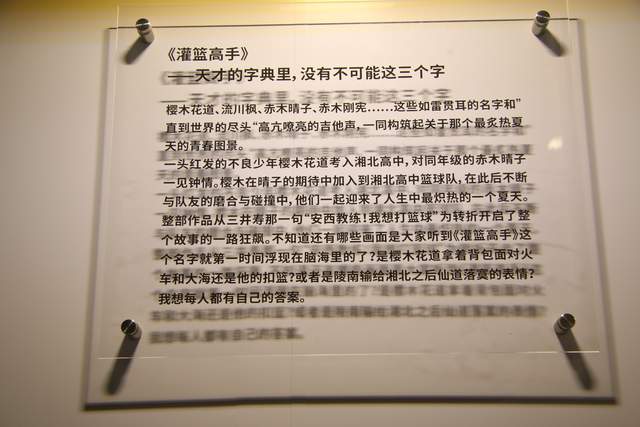 《灌篮高手》
——天才的字典里，没有不可能这三个字
樱木花道、流川枫、赤木晴子、赤木刚宪……这些如雷贯耳的名字和”
直到世界的尽头“高亢嘹亮的吉他声，一同构筑起关于那个最炙热夏
天的青春图景。
一头红发的不良少年樱木花道考入湘北高中，对同年级的赤木晴子
一见钟情。樱木在晴子的期待中加入到湘北高中篮球队，在此后不断
与队友的磨合与碰撞中，他们一起迎来了人生中最炽热的一个夏天。
整部作品从三井寿那一句“安西教练！我想打篮球”为转折开启了整
个故事的一路狂飙。不知道还有哪些画面是大家听到《灌篮高手》这
个名字就第一时间浮现在脑海里的了？是樱木花道拿着背包面对火
车和大海还是他的扣篮？或者是陵南输给湘北之后仙道落寞的表情？
我想每人都有自己的答案。